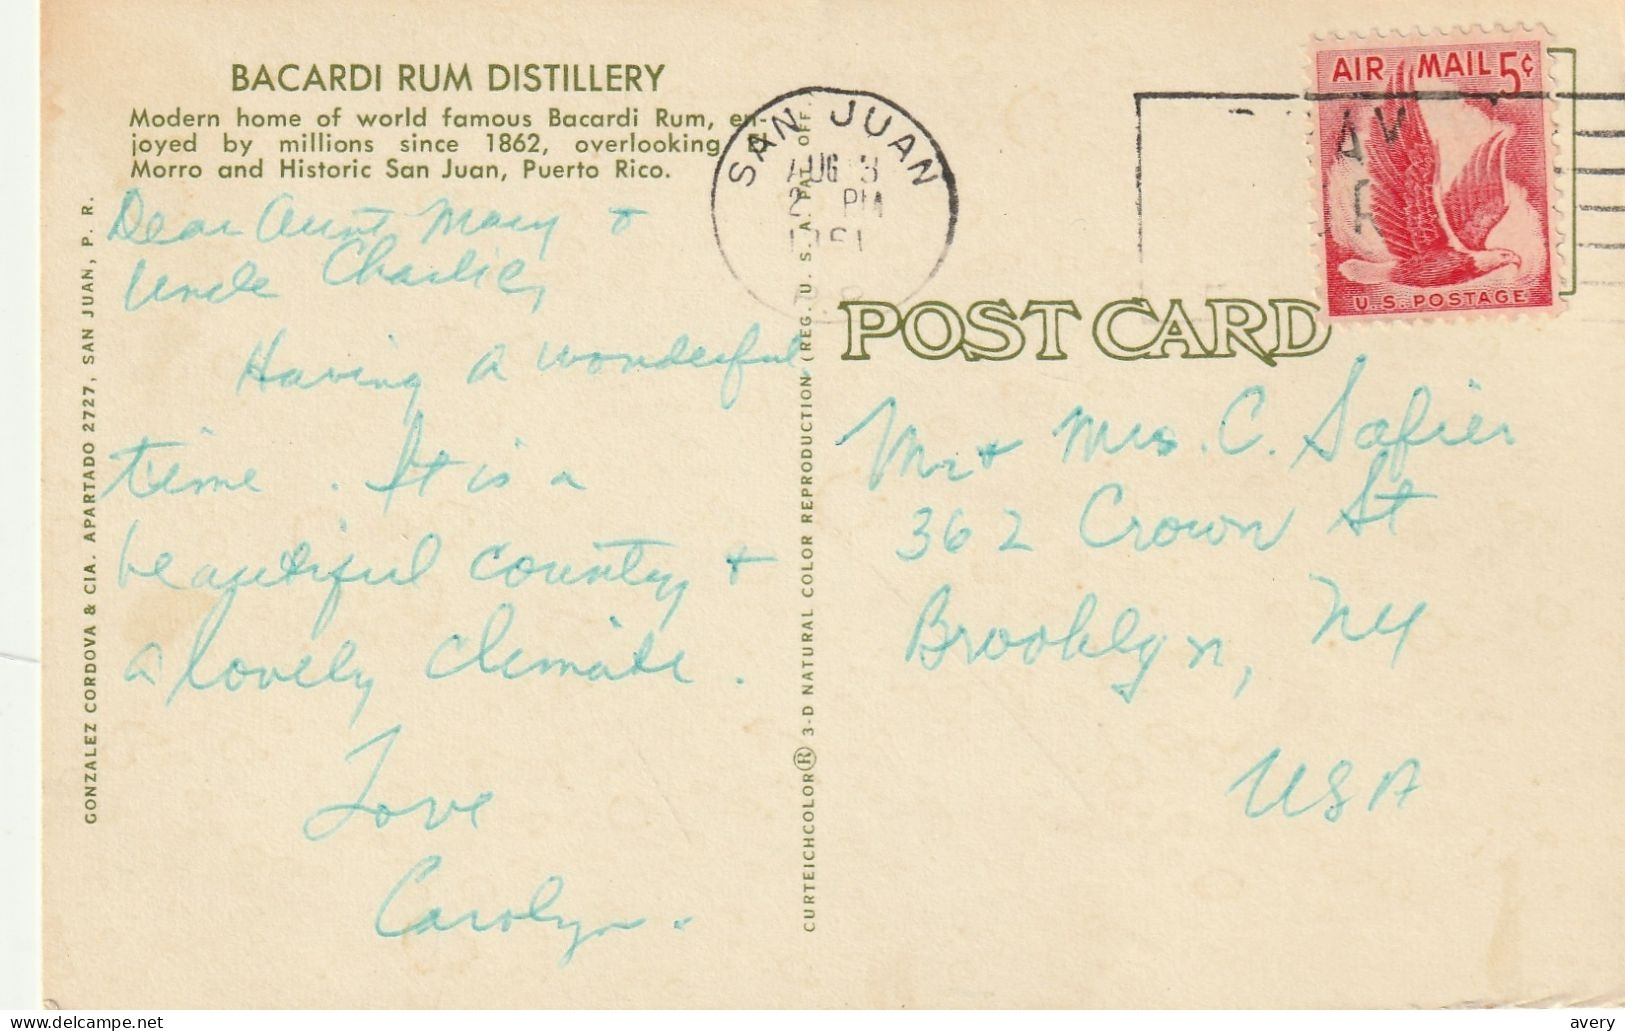 BACARDI RUM DISTILLERY
Modern home of world famous Bacardi Rum, en-
joyed by millions since 1862, overlooking
Morro and Historic San Juan, Puerto Rico.
Dear Aunt Mary &
Uncle Charlie,
Having a wonderful
time. It is a
beautiful country &
a lovely climate.
Love
Carolyn.
GONZALEZ CORDOVA & CIA. APARTADO 2727, SAN JUAN, P. R.
CURTEICHCOLOR® 3-D NATURAL COLOR REPRODUCTION (REG. U. S. A. PAT. OFF.
SAN JUAN
AUG
2 PM
AIR MAIL 5¢
U.S. POSTAGE
POST CARD
Mr & Mrs. C. Safier
362 Crown St
Brooklyn, NY
USA
delcampe.net
avery